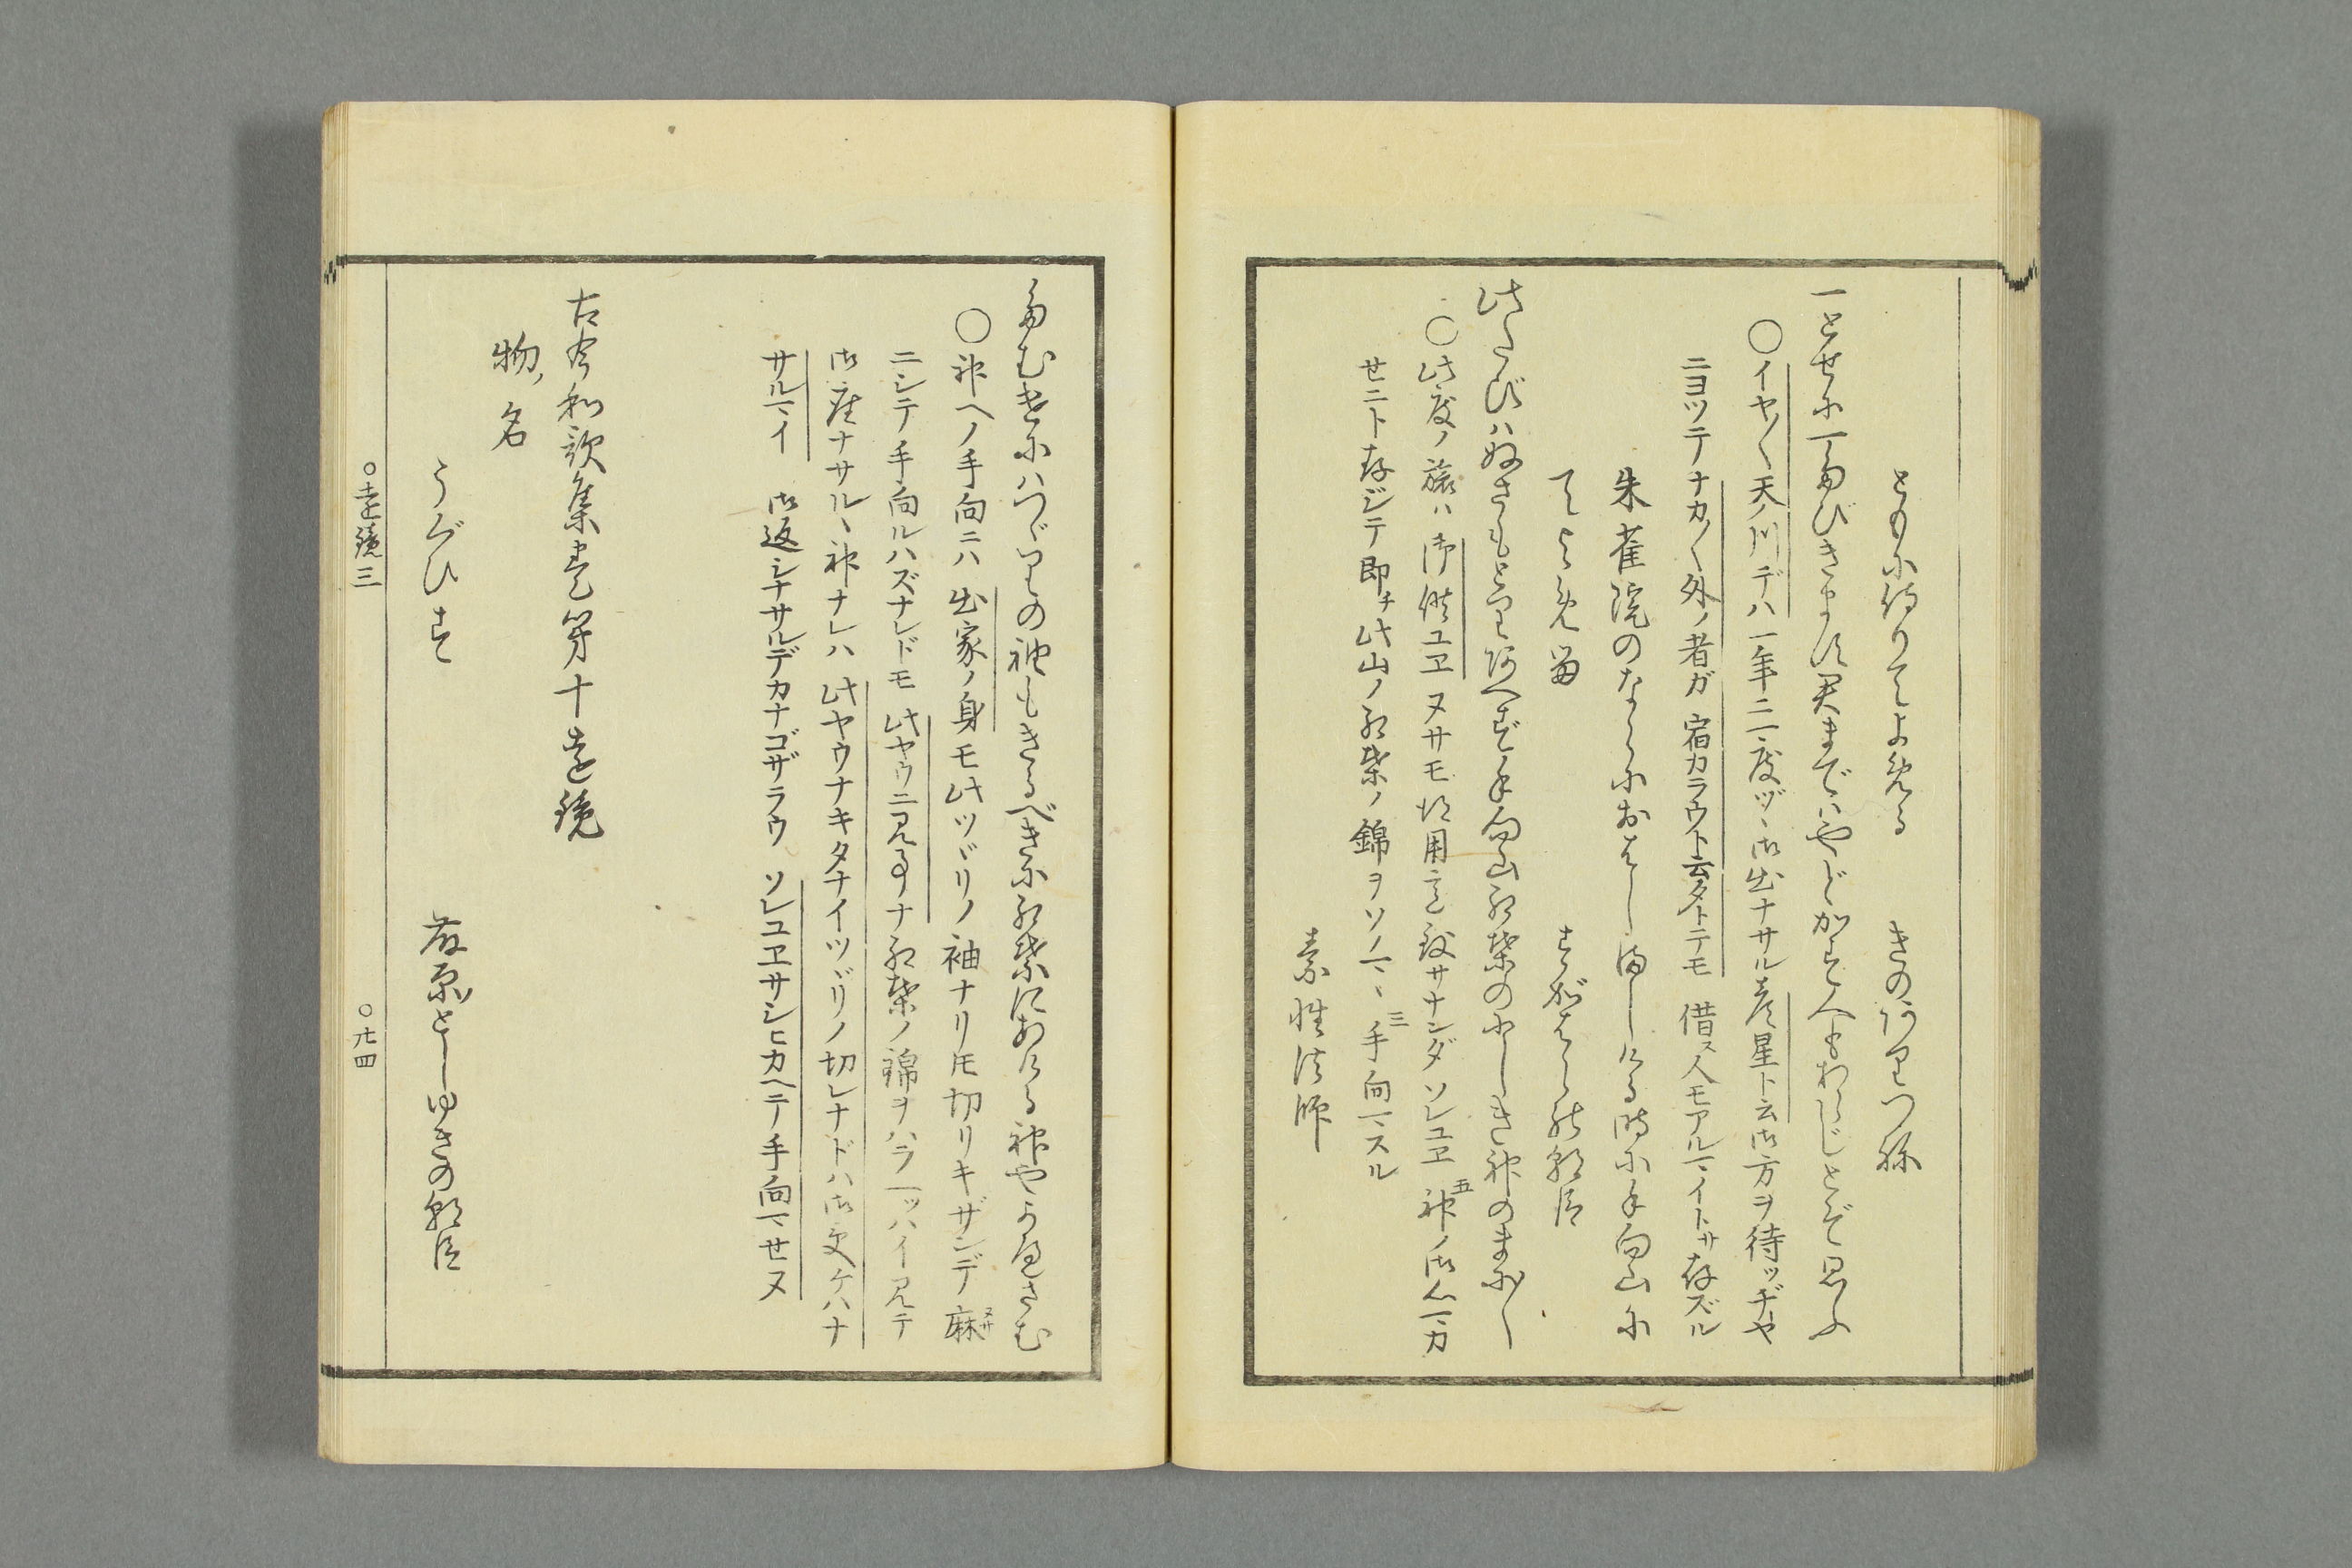 ともに侍りてよめる　きのありつね
一とせに一たびきます君まではやどかす人もあらじとぞ思ふ
○イヤ〳〵天ノ川デハ一年ニ一度ヅヽ御出ナサル彦星ト云御方ヲ待ッヂヤ
ニヨツテナカ〳〵外ノ者ガ宿カラウト云タトテモ借ス人モアルマイトサ存ズル
朱雀院のならにおはしましける時に手向山に
てよめる　すがはらの朝臣
此たびはぬさもとりあへず手向山紅葉のにしき神のまに〳〵
○此度ノ旅ハ御供ユヱヌサモ得用意致サナンダソレユヱ五神ノ御心マカ
せニト存ジテ即チ此山ノ紅葉ノ錦ヲソノマヽ三手向マスル
素性法師
たむけにはつゞりの袖もきるべきに紅葉にあける神やかへさむ
○神ヘノ手向ニハ出家ノ身モ此ツヾリノ袖ナリ𪜈切リキザンデ麻ヌサ
ニシテ手向ルハズナレドモ此ヤウニ見事ナ紅葉ノ錦ヲハラ一ッハイ見テ
御座ナサルヽ神ナレハ此ヤウナキタナイツヾリノ切レナドハ御受ケハナ
サルマイ　御返シナサルデカナゴザラウソレユヱサシヒカヘテ手向マせヌ
古今和歌集巻第十遠鏡
物ノ名
うぐひす　藤原としゆきの朝臣
○遠鏡三　○廿四